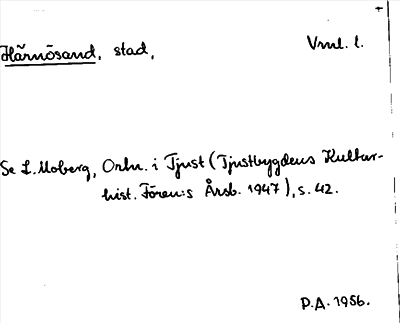 Härnösand, stad, Vrnl. l.
Se L. Moberg, Ortn. i Tjust (Tjustbygdens Kultur-
hist. Fören:s Årsb. 1947), s. 42.
P.A. 1956.